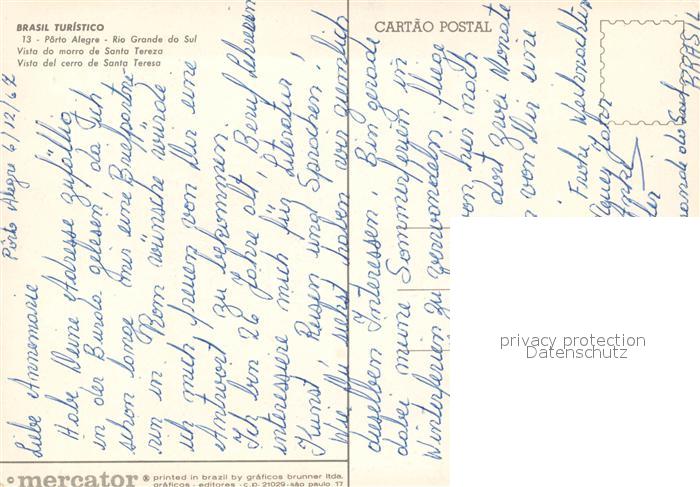 BRASIL TURÍSTICO
13 - Pôrto Alegre - Rio Grande do Sul
Vista do morro de Santa Tereza
Vista del cerro de Santa Teresa
CARTÃO POSTAL
Pôrto Alegre 6/12/67
Liebe Annemarie
Habe Deine Adresse zufällig
in der Burda gelesen, da Ich
schon lange mir eine Briefpartne-
rin in Rom wünsche würde
ich mich freuen von Dir eine
Antwort zu bekommen.
Ich bin 26 Jahre alt, Beruf Lehrerin
interessiere mich für Literatur,
Kunst, Reisen und Sprachen!
Wie Du siehst haben wir ziemlich
dieselben Interessen! Bin gerade
dabei meine Sommerferien in
Winterferien zu verwandeln, fliege
hier noch
dort zwei Monate
von Dir eine
Frohe Weihnachten
Jahr
mercator ® printed in brazil by gráficos brunner ltda.
gráficos - editores - c.p. 21029 - são paulo, 17
privacy protection
Datenschutz